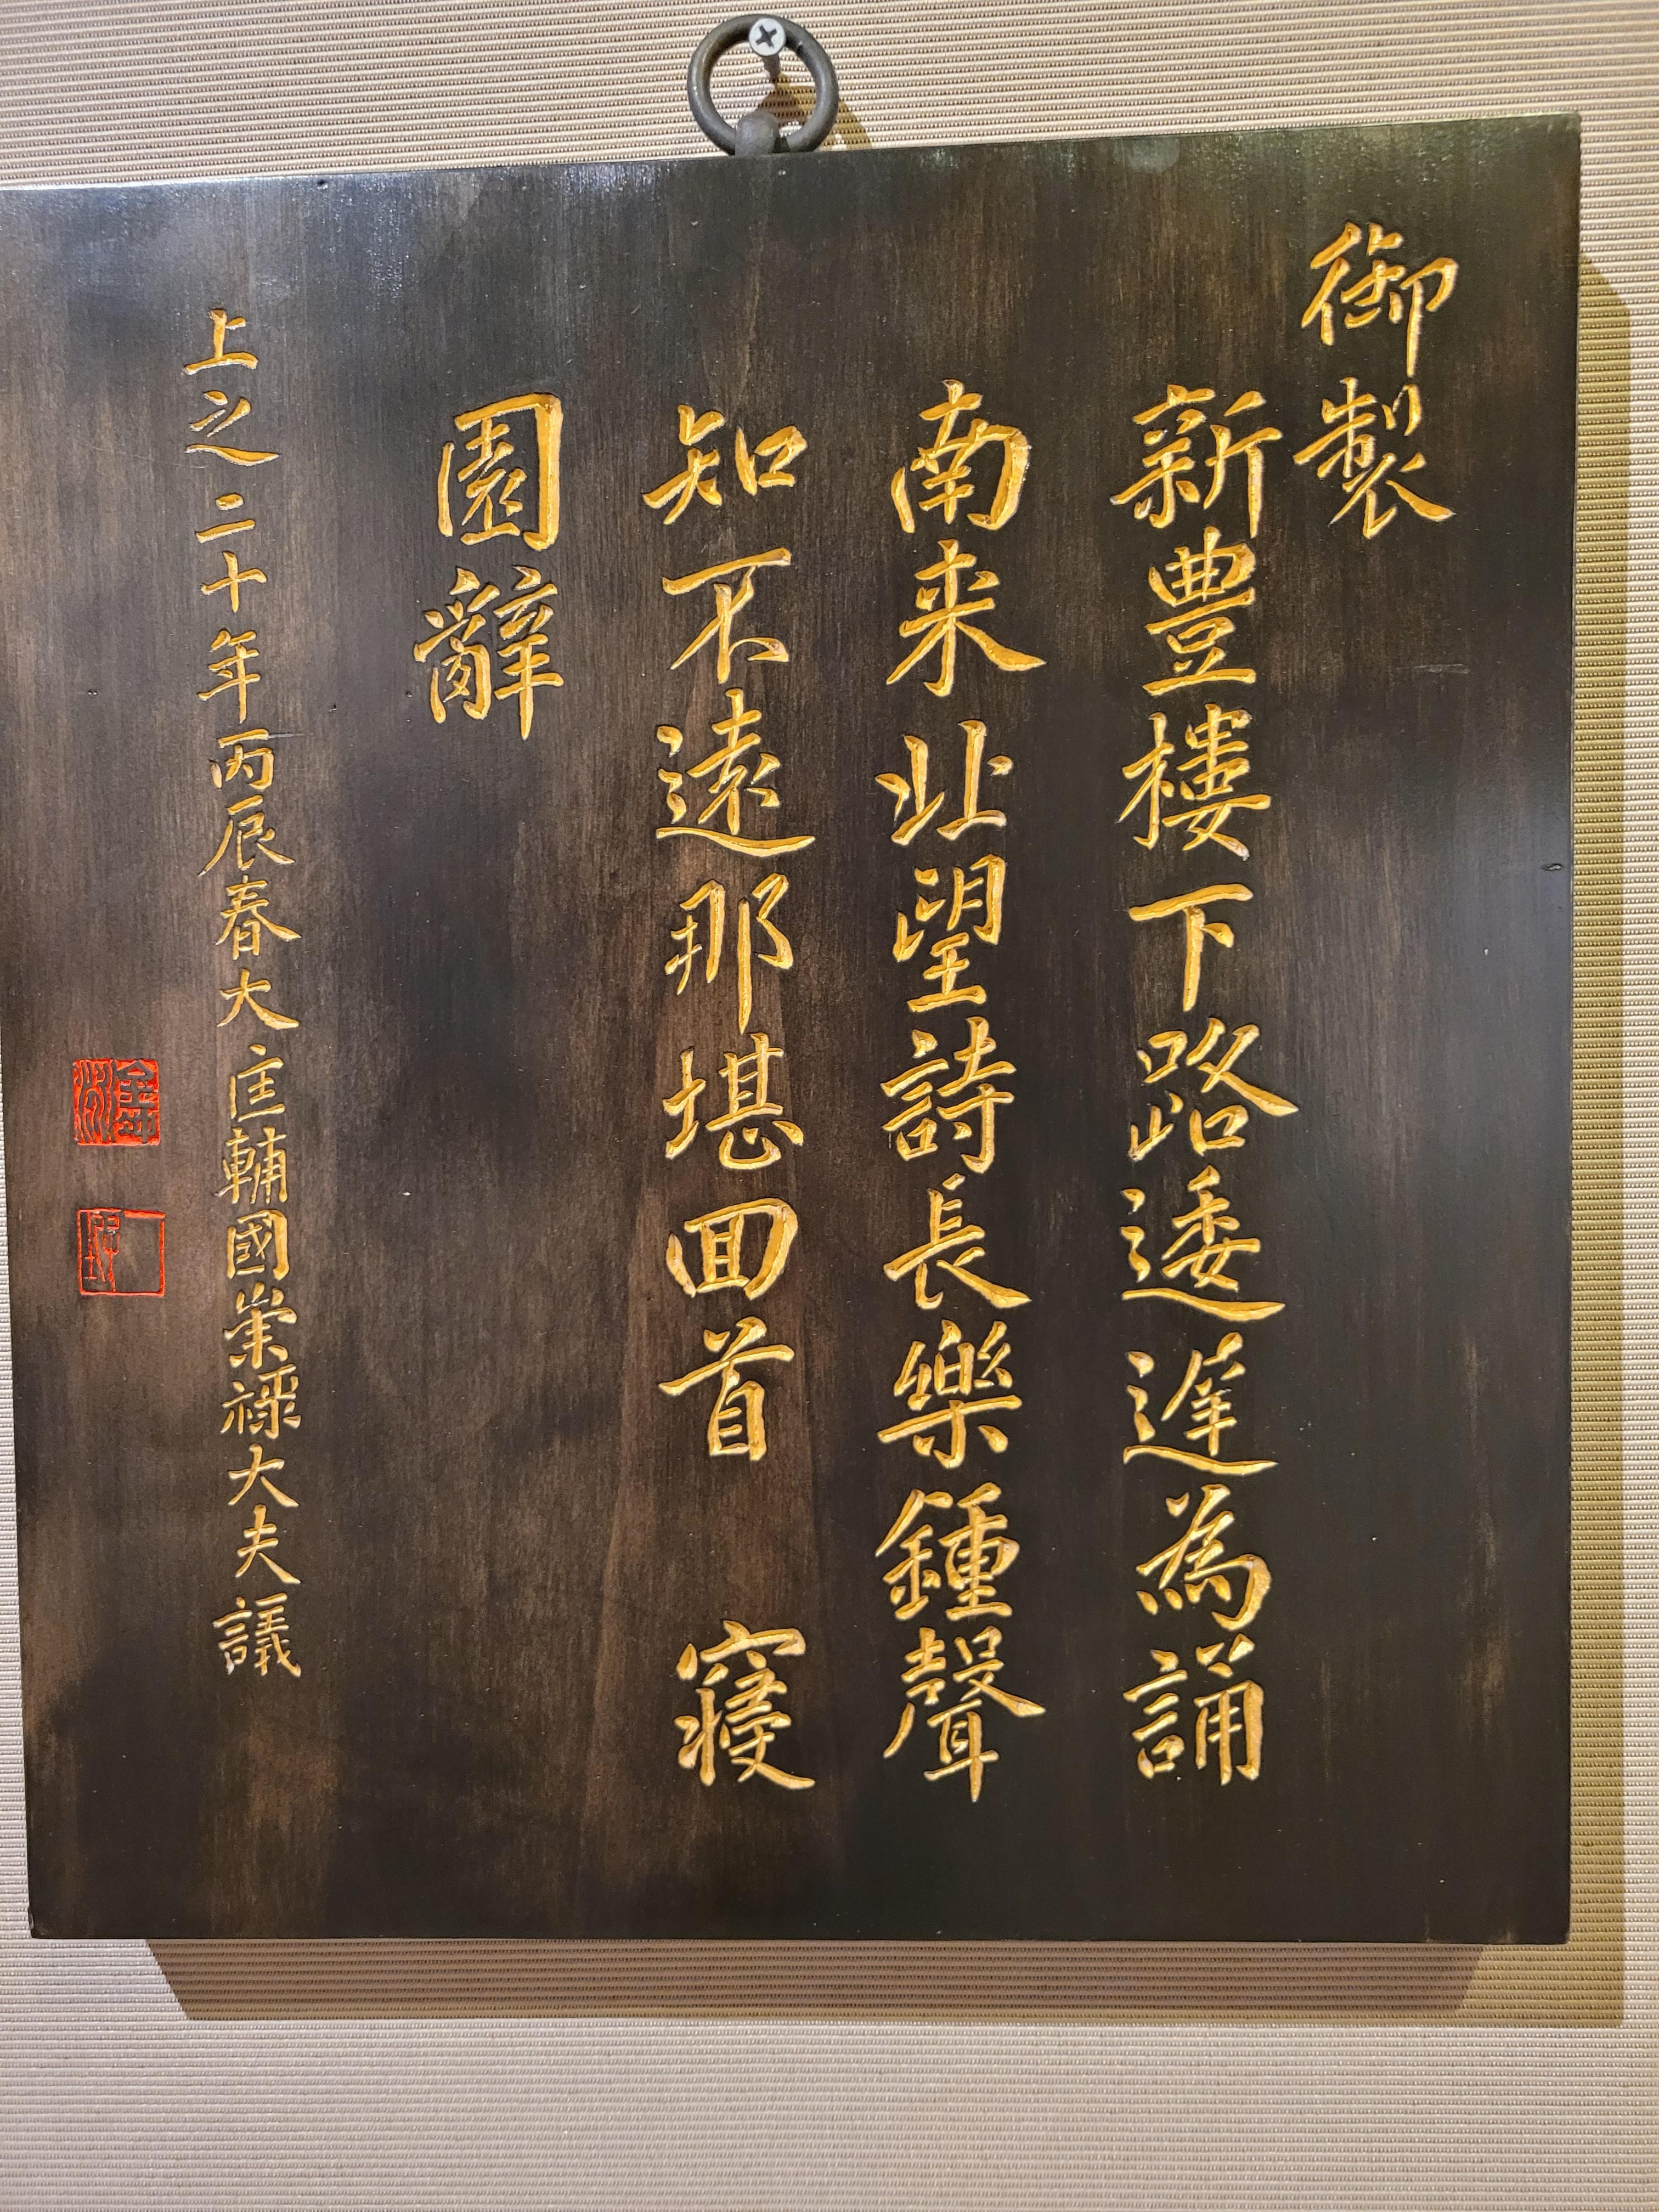 御製
新豊樓下路逶遅為誦
南来北望詩長樂鍾聲
知不遠那堪回首 寢
園辭
上之二十年丙辰春大匡輔國崇祿大夫議